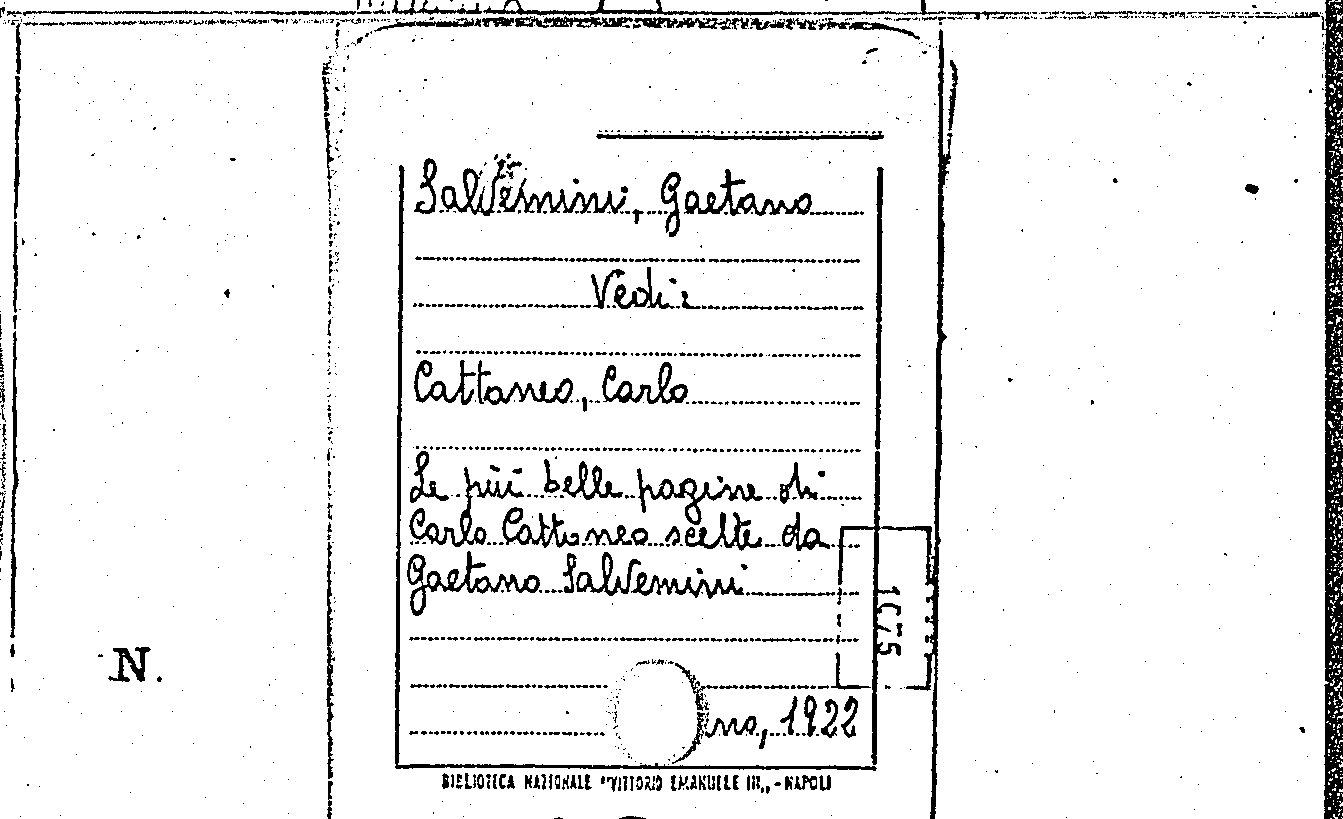 Salvemini, Gaetano
Vedi:
Cattaneo, Carlo
Le più belle pagine di
Carlo Cattaneo scelte da
Gaetano Salvemini
1975
N.
no, 1922
BIBLIOTECA NAZIONALE "VITTORIO EMANUELE III„ - NAPOLI